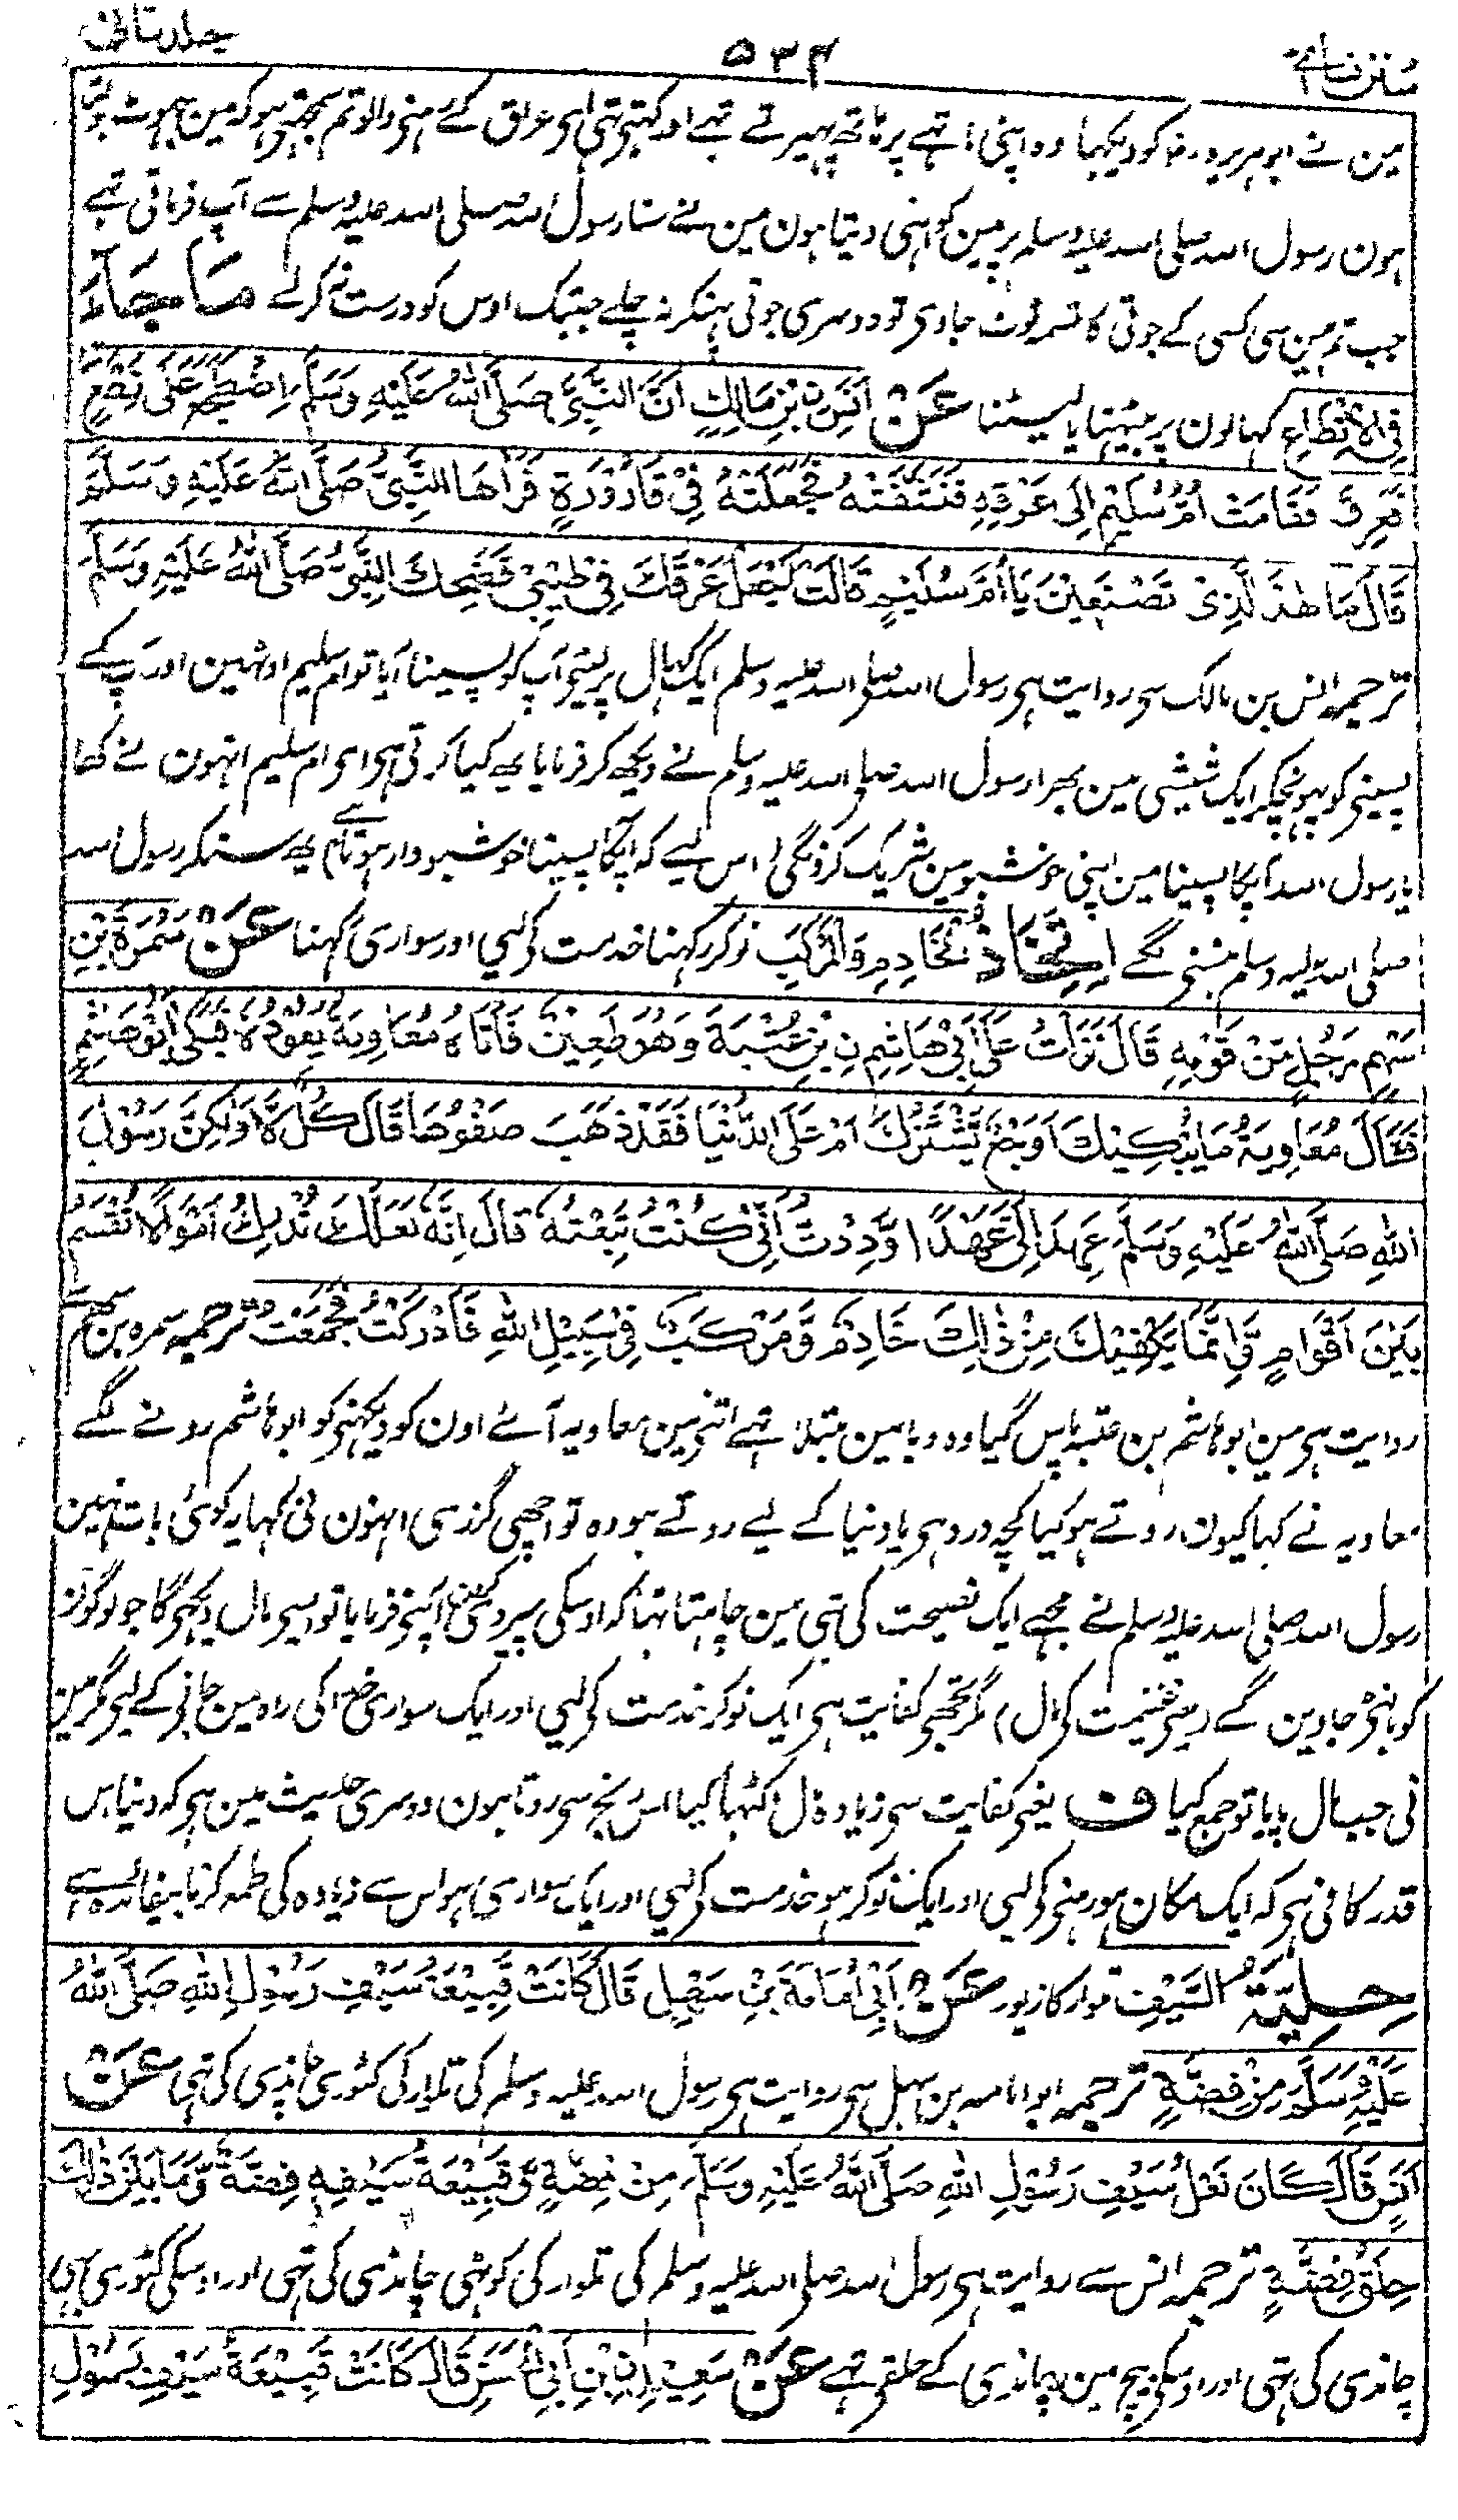 سنن نسائے
۵۳۴
جلد ثانی
مین نے ابوہریرہ رضہ کو دیکہا وہ اپنی ماتہے پر ہاتھ پہیرتے تہے اور کہتی تہی ای عراق کے رہنی والو تم سمجہتی ہو کہ مین جہوٹ بولتا
ہون رسول اللہ صلی اللہ علیہ وسلم پر مین گواہی دیتا ہون مین نے سنا رسول اللہ صلی اللہ علیہ وسلم سے آپ فرماتی تہے
جب تم مین سی کسی کے جوتی کا تسمہ ٹوٹ جاوی تو دوسری جوتی پہنکر نہ چلے جبتک اوس کو درست نہ کرلے مَا جَاءَ
فِی الْاَنْطَاعِ کہالون پر بیٹہنا یا لیٹنا عَنْ اَنَسِ بْنِ مَالِکٍ اَنَّ النَّبِیَّ صَلَّی اللّٰهُ عَلَیْهِ وَسَلَّمَ اِضْطَجَعَ عَلٰی نِطْعٍ
فَعَرِقَ فَقَامَتْ اُمُّ سُلَیْمٍ اِلٰی عَرَقِهٖ فَنَشَّفَتْهُ فَجَعَلَتْهُ فِیْ قَارُوْرَةٍ فَرَاٰهَا النَّبِیُّ صَلَّی اللّٰهُ عَلَیْهِ وَسَلَّمَ
قَالَ مَا هٰذَا الَّذِیْ تَصْنَعِیْنَ یَا اُمَّ سُلَیْمٍ قَالَتْ اَجْعَلُ عَرَقَكَ فِیْ طِیْبِیْ فَضَحِكَ النَّبِیُّ صَلَّی اللّٰهُ عَلَیْهِ وَسَلَّمَ
ترجمہ انس بن مالک سی روایت ہی رسول اللہ صلی اللہ علیہ وسلم ایک کہال پر لیٹی آپ کو پسینا آیا تو ام سلیم اوٹہین اور آپ کے
پسینی کو پونچہکر ایک شیشی مین بہرا رسول اللہ صلی اللہ علیہ وسلم نے دیکھ کر فرمایا یہ کیا کرتی ہی ای ام سلیم انہون نے کہا
یا رسول اللہ آپکا پسینا مین اپنی خوشبو مین شریک کرونگی اس لیے کہ آپکا پسینا خوشبودار ہوتا ہے یہ سنکر رسول اللہ
صلی اللہ علیہ وسلم ہنسنی لگے اِتِّخَاذُ الْخَادِمِ وَالْمَرْکَبِ نوکر رکہنا خدمت کی لیی اور سواری رکہنا عَنْ سَمُرَةَ بْنِ
سَهْمٍ رَجُلٍ مِّنْ قَوْمِهٖ قَالَ نَزَلْتُ عَلٰی اَبِیْ هَاشِمِ بْنِ عُتْبَةَ وَهُوَ طَعِیْنٌ فَاَتَاهُ مُعَاوِیَةُ یَعُوْدُهٗ فَبَکٰی اَبُوْ هَاشِمٍ
فَقَالَ مُعَاوِیَةُ مَا یُبْکِیْكَ اَوَجَعٌ یُّشْئِزُكَ اَمْ عَلَی الدُّنْیَا فَقَدْ ذَهَبَ صَفْوُهَا قَالَ کُلٌّ لَّا وَلٰکِنَّ رَسُوْلَ
اللّٰهِ صَلَّی اللّٰهُ عَلَیْهِ وَسَلَّمَ عَهِدَ اِلَیَّ عَهْدًا وَّدِدْتُ اَنِّیْ کُنْتُ تَبِعْتُهٗ قَالَ اِنَّهٗ لَعَلَّكَ تُدْرِكُ اَمْوَالًا تُقْسَمُ
بَیْنَ اَقْوَامٍ وَّاِنَّمَا یَکْفِیْكَ مِنْ ذٰلِكَ خَادِمٌ وَّمَرْکَبٌ فِیْ سَبِیْلِ اللّٰهِ فَاَدْرَکْتُ فَجَمَعْتُ ترجمہ سمرہ بن سہم سے
روایت ہی مین ابوہاشم بن عتبہ پاس گیا وہ وبا مین مبتلا تہے اتنی مین معاویہ آئے اون کو دیکہنی کو ابوہاشم رونے لگے
معاویہ نے کہا کیون روتے ہو کیا کچہ درد ہی یا دنیا کے لیے روتے ہو وہ تو اچہی گذری انہون نی کہا یہ کوئی بات نہین
رسول اللہ صلی اللہ علیہ وسلم نے مجہے ایک نصیحت کی تہی مین چاہتا تہا کہ اوسکی پیروی کرتا آپنی فرمایا تو ایسی مال دیکہیگا جو لوگون
کو بانٹی جاوین گے (یعنی غنیمت کی مال) مگر تجہی کفایت ہی ایک نوکر خدمت کی لیی اور ایک سواری خدا کی راہ مین جانی کے لیی مگر مین
نی جب مال پایا تو جمع کیا ف یعنی کفایت سی زیادہ مال اکٹہا کیا اس رنج سی روتا ہون دوسری حدیث مین ہی کہ دنیا بس
قدر کافی ہی کہ ایک مکان ہو رہنی کی لیی اور ایک نوکر ہو خدمت کی لیی اور ایک سواری ہو اس سے زیادہ کی طمع کرنا بیفائدہ ہے
حِلْیَةُ السَّیْفِ تلوار کا زیور عَنْ اَبِیْ اُمَامَةَ بْنِ سَهْلٍ قَالَ کَانَتْ قَبِیْعَةُ سَیْفِ رَسُوْلِ اللّٰهِ صَلَّی اللّٰهُ
عَلَیْهِ وَسَلَّمَ مِنْ فِضَّةٍ ترجمہ ابو امامہ بن سہل سی روایت ہی رسول اللہ علیہ وسلم کی تلوار کی کٹوری چاندی کی تہی عَنْ
اَنَسٍ قَالَ کَانَ نَعْلُ سَیْفِ رَسُوْلِ اللّٰهِ صَلَّی اللّٰهُ عَلَیْهِ وَسَلَّمَ مِنْ فِضَّةٍ وَّقَبِیْعَةُ سَیْفِهٖ فِضَّةٌ وَّمَا بَیْنَ ذٰلِكَ
حِلَقُ فِضَّةٍ ترجمہ انس سے روایت ہی رسول اللہ صلی اللہ علیہ وسلم کی تلوار کی کوٹہی چاندی کی تہی اور اوسکی کٹوری بہی
چاندی کی تہی اور اوسکی بیچ مین چاندی کے حلقی تہے عَنْ سَعِیْدِ بْنِ اَبِی الْحَسَنِ قَالَ کَانَتْ قَبِیْعَةُ سَیْفِ رَسُوْلِ